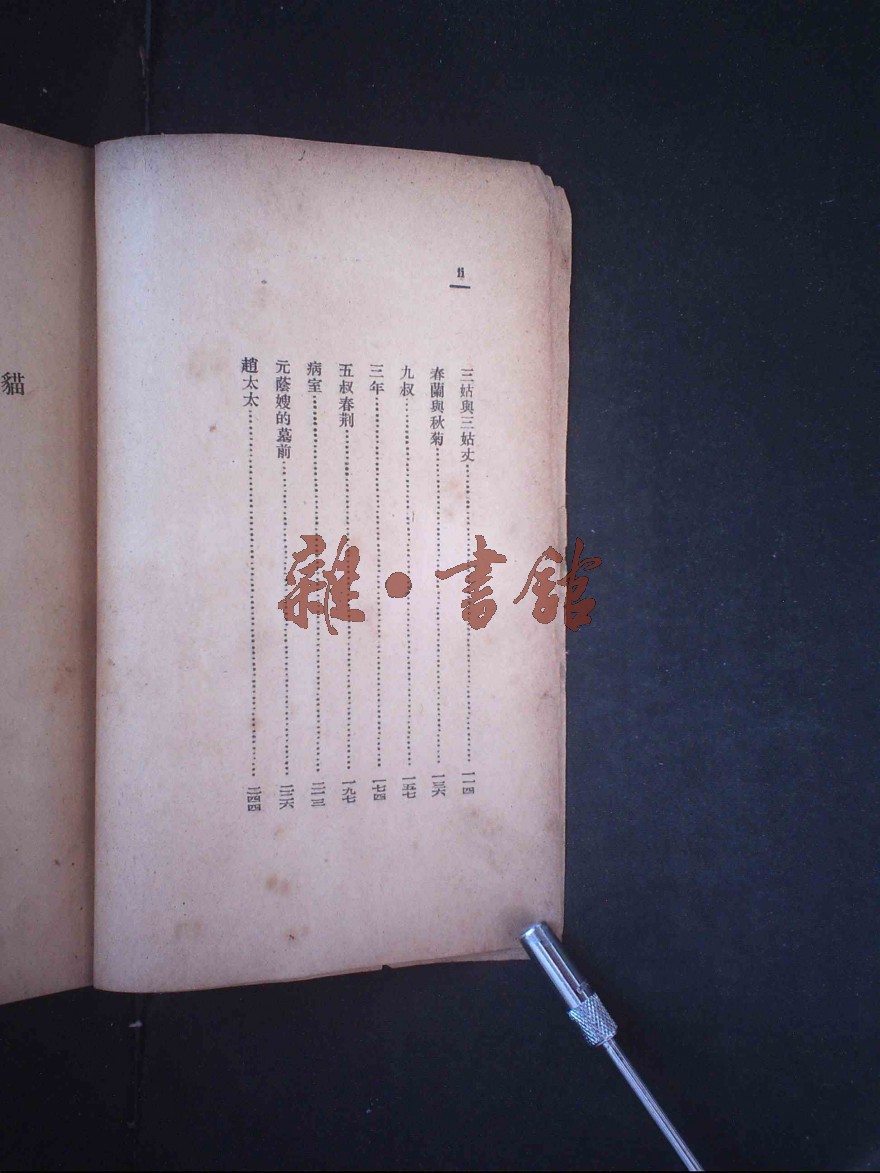 11
三姑與三姑丈……一一四
春蘭與秋菊……一三六
九叔……一五七
三年……一七四
五叔春荆……一九七
病室……二一三
元蔭嫂的墓前……二二六
趙太太……二四四
貓
雜·書館